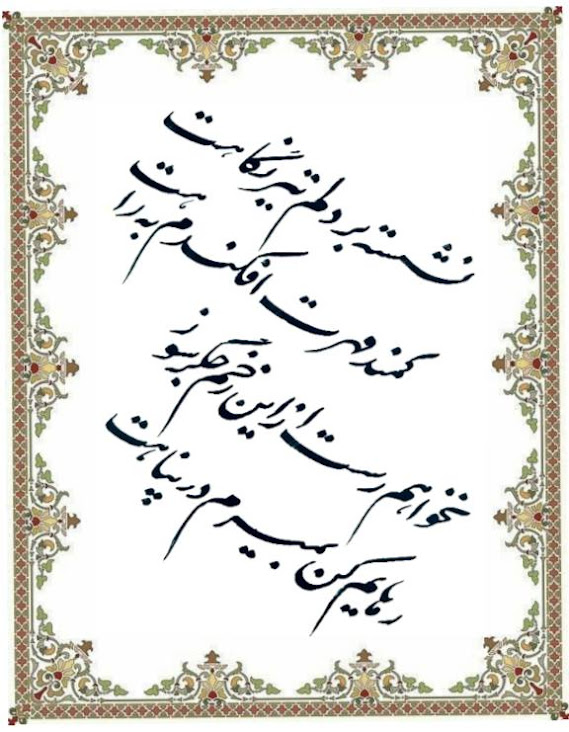 نشسته بر دلم تیر نگاهت
کمند مهرت افکندم به راهت
نخواهم رست از این زخم جگرسوز
رهایم کن بمیرم در پناهت